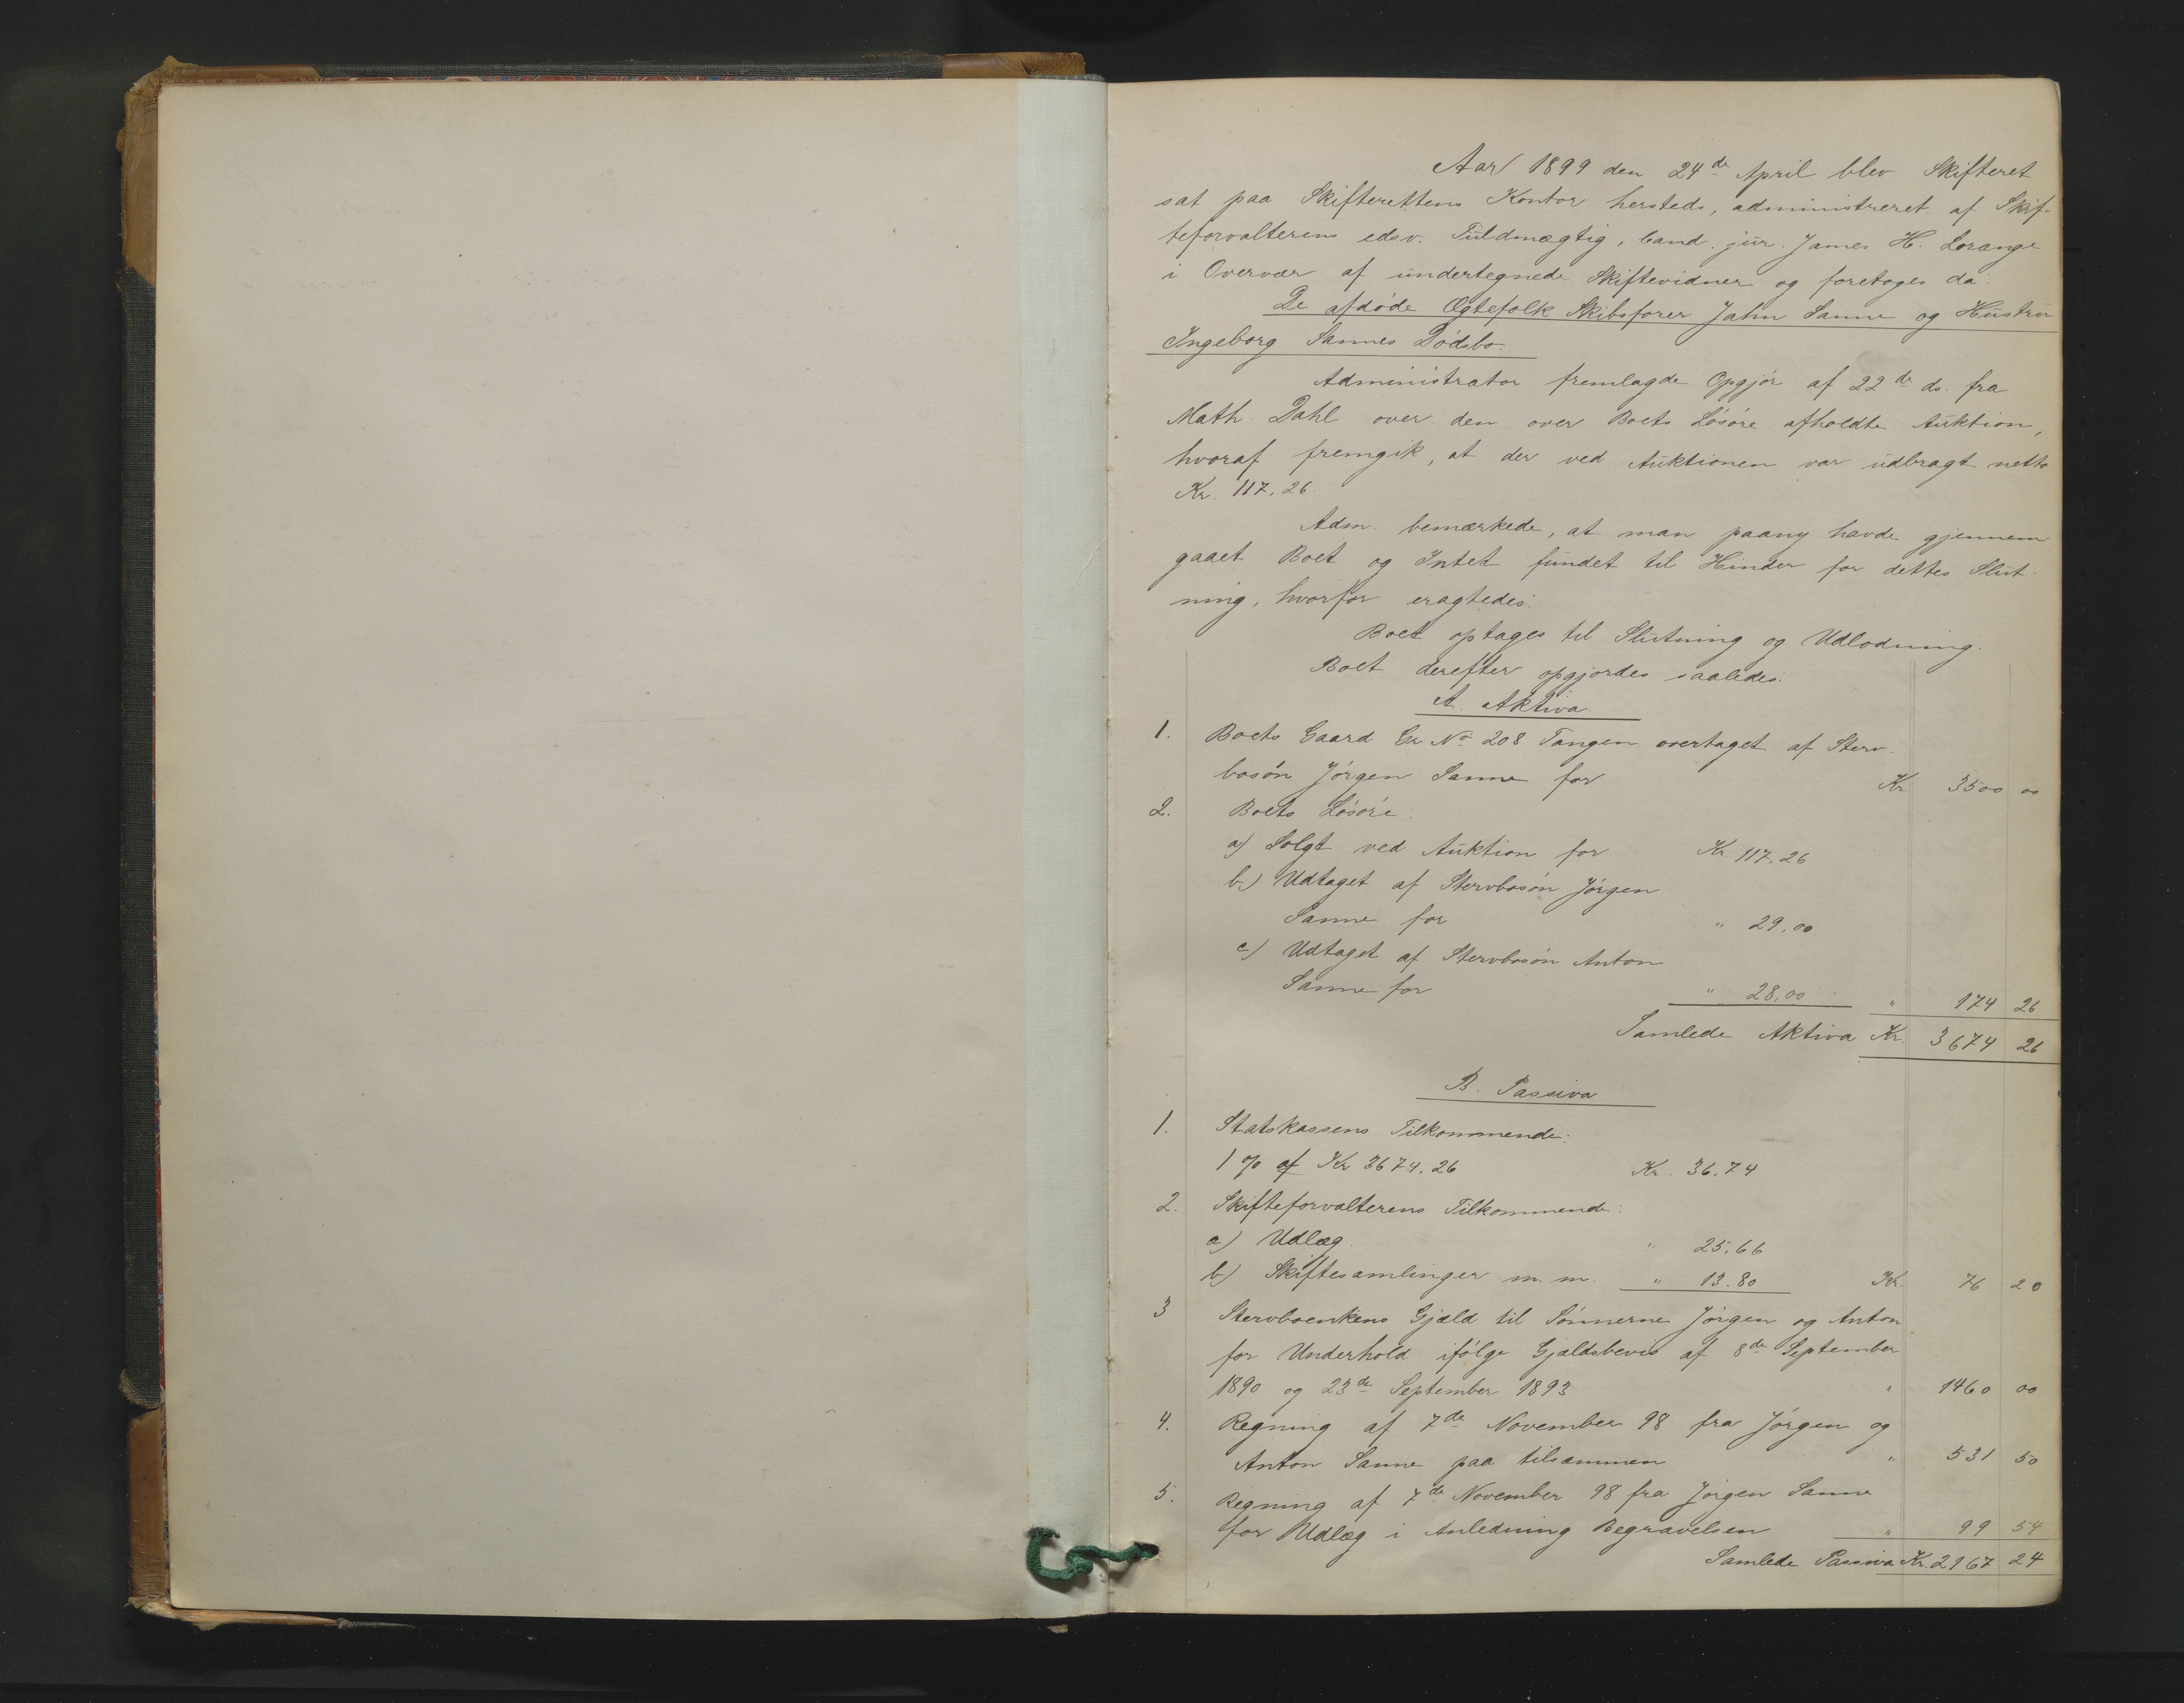 Aar 1899 den 24de April blev Skifteret
sat paa Skifterettens Kontor hersteds, administreret af Skif-
teforvalterens edsv. Fuldmægtig, Cand. jur. James H. Lorange
i Overvær af undertegnede Skiftevidner og foretoges da:
De afdøde Ægtefolk Skibsfører Jahn Sanne og Hustru
Ingeborg Sannes Dødsbo.
Administrator fremlagde Opgjør af 22de ds. fra
Math. Dahl over den over Boets Løsøre afholdte Auktion,
hvoraf fremgik, at der ved Auktionen var udbragt netto
Kr. 117,26.
Adm. bemærkede, at man paany havde gjennem
gaaet Boet og Intet fundet til Hinder for dettes Slut-
ning, hvorfor eragtedes:
Boet optages til Slutning og Udlodning.
Boet derefter opgjordes saaledes:
A. Aktiva.
1. Boets Gaard Gr. No 208 Tangen overtaget af Sterv-
bosøn Jørgen Sanne for Kr. 3500 00
2. Boets Løsøre:
a) Solgt ved Auktion for Kr. 117.26
b) Udtaget af Stervbosøn Jørgen
Sanne for " 29.00
c) Udtaget af Stervbosøn Anton
Sanne for " 28,00 " 174 26
Samlede Aktiva Kr. 3674 26
B. Passiva
1. Statskassens Tilkommende:
1 % af Kr 3674.26 Kr. 36.74
2. Skifteforvalterens Tilkommende:
a) Udlæg " 25.66
b) Skiftesamlinger m. m. " 13.80 Kr. 76 20
3 Stervboenkens Gjæld til Sønnerne Jørgen og Anton
for Underhold ifølge Gjældsbevis af 8de September
1890 og 23de September 1893 " 1460 00
4. Regning af 7de November 98 fra Jørgen og
Anton Sanne paa tilsammen " 531 50
5. Regning af 7de November 98 fra Jørgen Sanne
for Udlæg i Anledning Begravelsen " 99 54
Samlede Passiva Kr. 2167 24